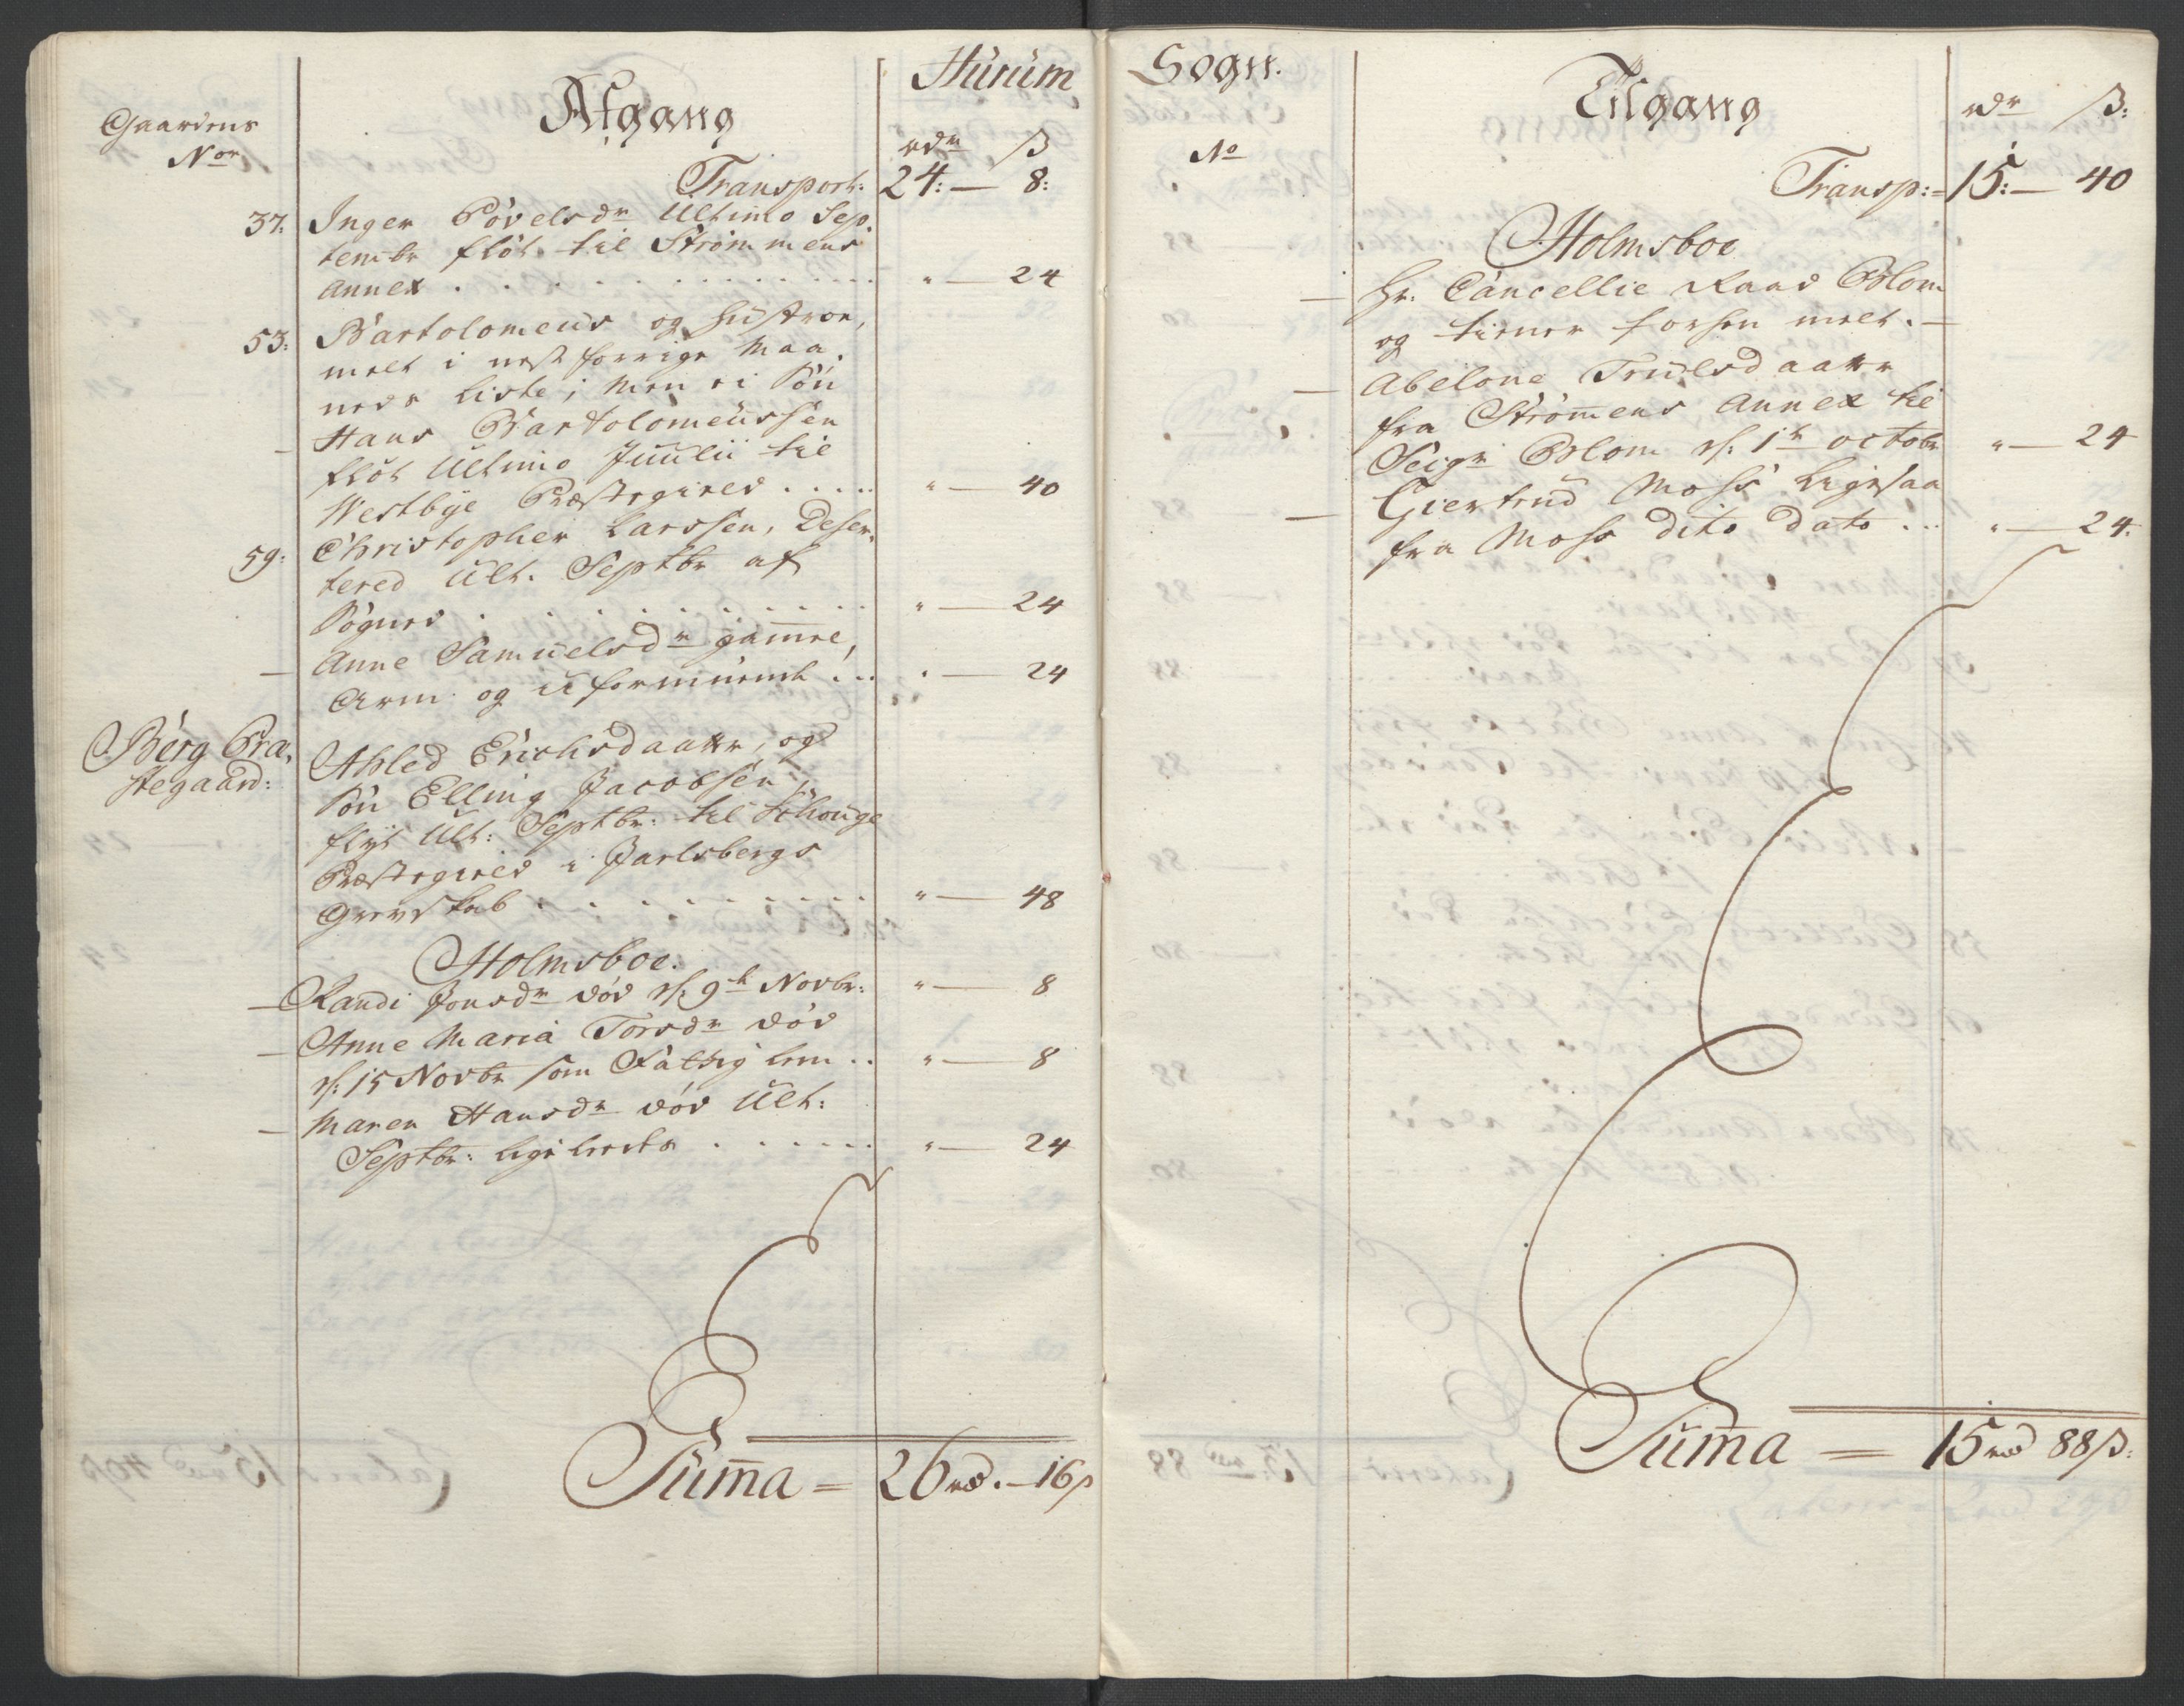 Hurum
Gaardens
Nor
Afgang
rdr ß
Transport: 24:— 8:
37: Inger Povelsdr Ultimo Sep-
tembr flöt til Strømmens
Annex . . . . . . . . " — 24
53: Bartolomeus og Hustroe,
melt i nest forrige Maa-
neds Liste; Men ei Søn
— Hans Bartolomeussen
flöt Ultimo Juulii til
Westbye Præstegield . . . . . " — 40
59: Christopher Larssen, Deser-
tered Ult. Septbr af
Sognet . . . . . . . . " — 24
— Anne Samuelsdr gammel,
Arm og uformuende . . . " — 24
Berg Præ-
stegaard:
Ahled Erichsdaatter, og
Søn Elling Jacobsen,
flyt Ult: Septbr: til Schouge
Præstegield i Jarlsbergs
Grevskab . . . . . . . . " — 48
Holmsboe.
— Randi Jonsdr död d: 9de Novbr: " — 8
— Anne Maria Torsdr död
d: 15 Novbr som Fattig Lem . . " — 8
— Maren Hansdr död Ult:
Septbr: lige­ledes . . . . . . " — 24
Summa = 26 rd. — 16 ß
Sogn.
No
Tilgang
rdr ß:
Transp: = 15:— 40
Holmsboe
— Hr: Cancellie Raad Blom
og tiener forhen melt. —
— Abelone Truelsdaatter
fra Strømmens Annex til
Seigr Blom d: 1te octobr " — 24
— Giertrud Moss ligesaa
fra Moss dito dato . . . " — 24.
Summa = 15 rd 88 ß: